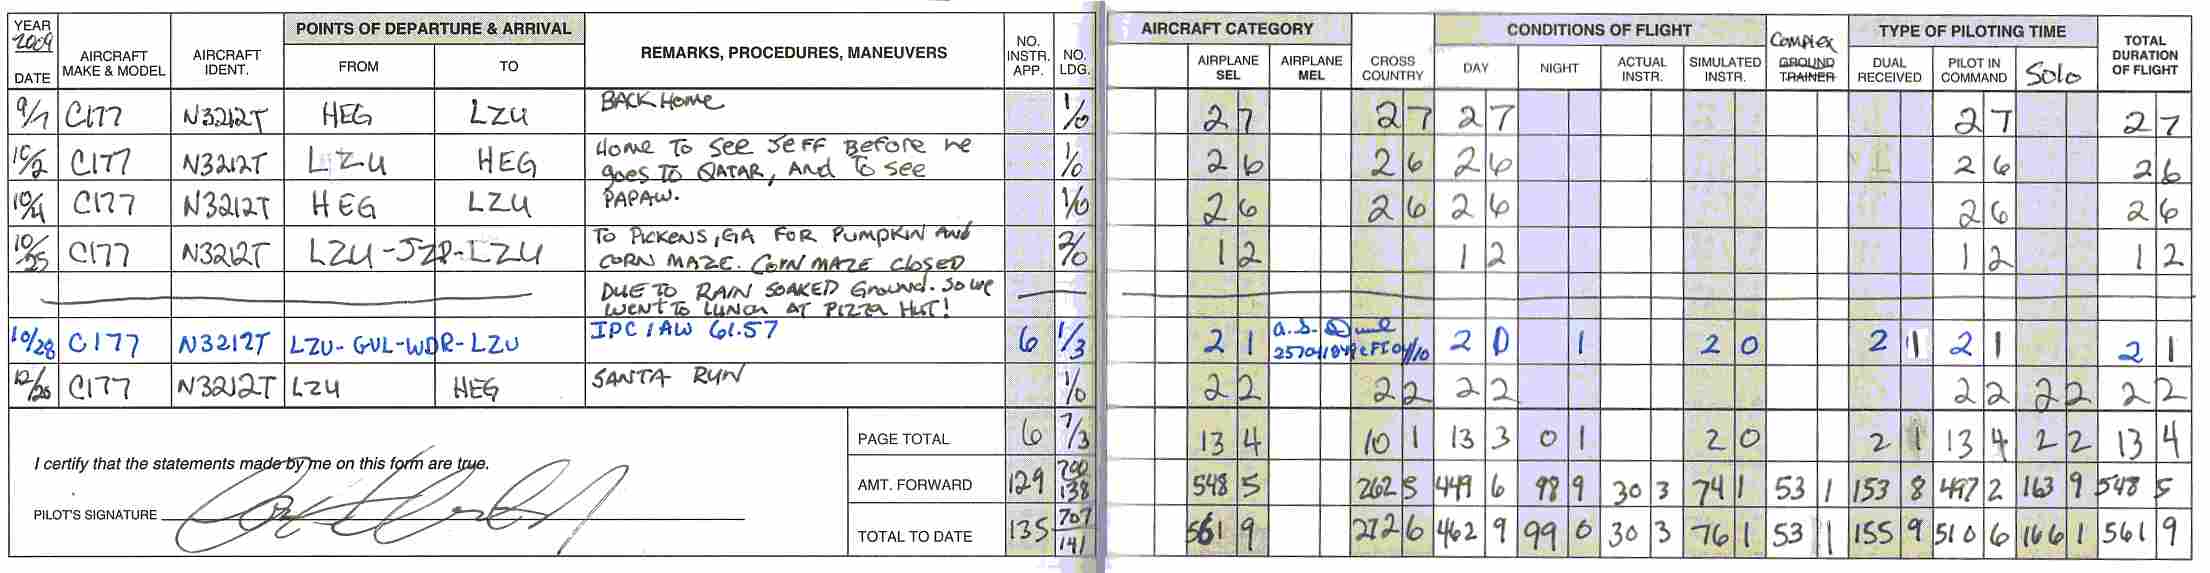 YEAR 2009 DATE
AIRCRAFT MAKE & MODEL
AIRCRAFT IDENT.
POINTS OF DEPARTURE & ARRIVAL
FROM TO
REMARKS, PROCEDURES, MANEUVERS
NO. INSTR. APP.
NO. LDG.
AIRCRAFT CATEGORY
AIRPLANE SEL
AIRPLANE MEL
CROSS COUNTRY
CONDITIONS OF FLIGHT
DAY NIGHT ACTUAL INSTR. SIMULATED INSTR.
Complex GROUND TRAINER
TYPE OF PILOTING TIME
DUAL RECEIVED PILOT IN COMMAND Solo
TOTAL DURATION OF FLIGHT
9/7 C177 N3212T HEG LZU BACK Home 1/0 2 7 2 7 2 7 2 7 2 7
10/2 C177 N3212T LZU HEG Home To See JEFF Before he 1/0 2 6 2 6 2 6 2 6 2 6
goes To QATAR, And To see
10/4 C177 N3212T HEG LZU PAPAW. 1/0 2 6 2 6 2 6 2 6 2 6
10/25 C177 N3212T LZU-JZP-LZU TO PICKENS, GA FOR PUMPKIN And 2/0 1 2 1 2 1 2 1 2
CORN MAZE. CORN MAZE closed
DUE TO RAIN SOAKED Ground. So we
WENT TO LUNCH AT PIZZA HUT!
10/28 C177 N3212T LZU-GVL-WDR-LZU IPC IAW 61.57 6 1/3 2 1 2 0 1 2 0 2 1 2 1 2 1
12/20 C177 N3212T LZU HEG SANTA RUN 1/0 2 2 2 2 2 2 2 2 2 2 2 2
PAGE TOTAL 6 7/3 13 4 10 1 13 3 0 1 2 0 2 1 13 4 2 2 13 4
I certify that the statements made by me on this form are true.
AMT. FORWARD 129 700 138 548 5 262 5 449 6 98 9 30 3 74 1 53 1 153 8 497 2 163 9 548 5
PILOT'S SIGNATURE
TOTAL TO DATE 135 707/141 561 9 272 6 462 9 99 0 30 3 76 1 53 1 155 9 510 6 166 1 561 9